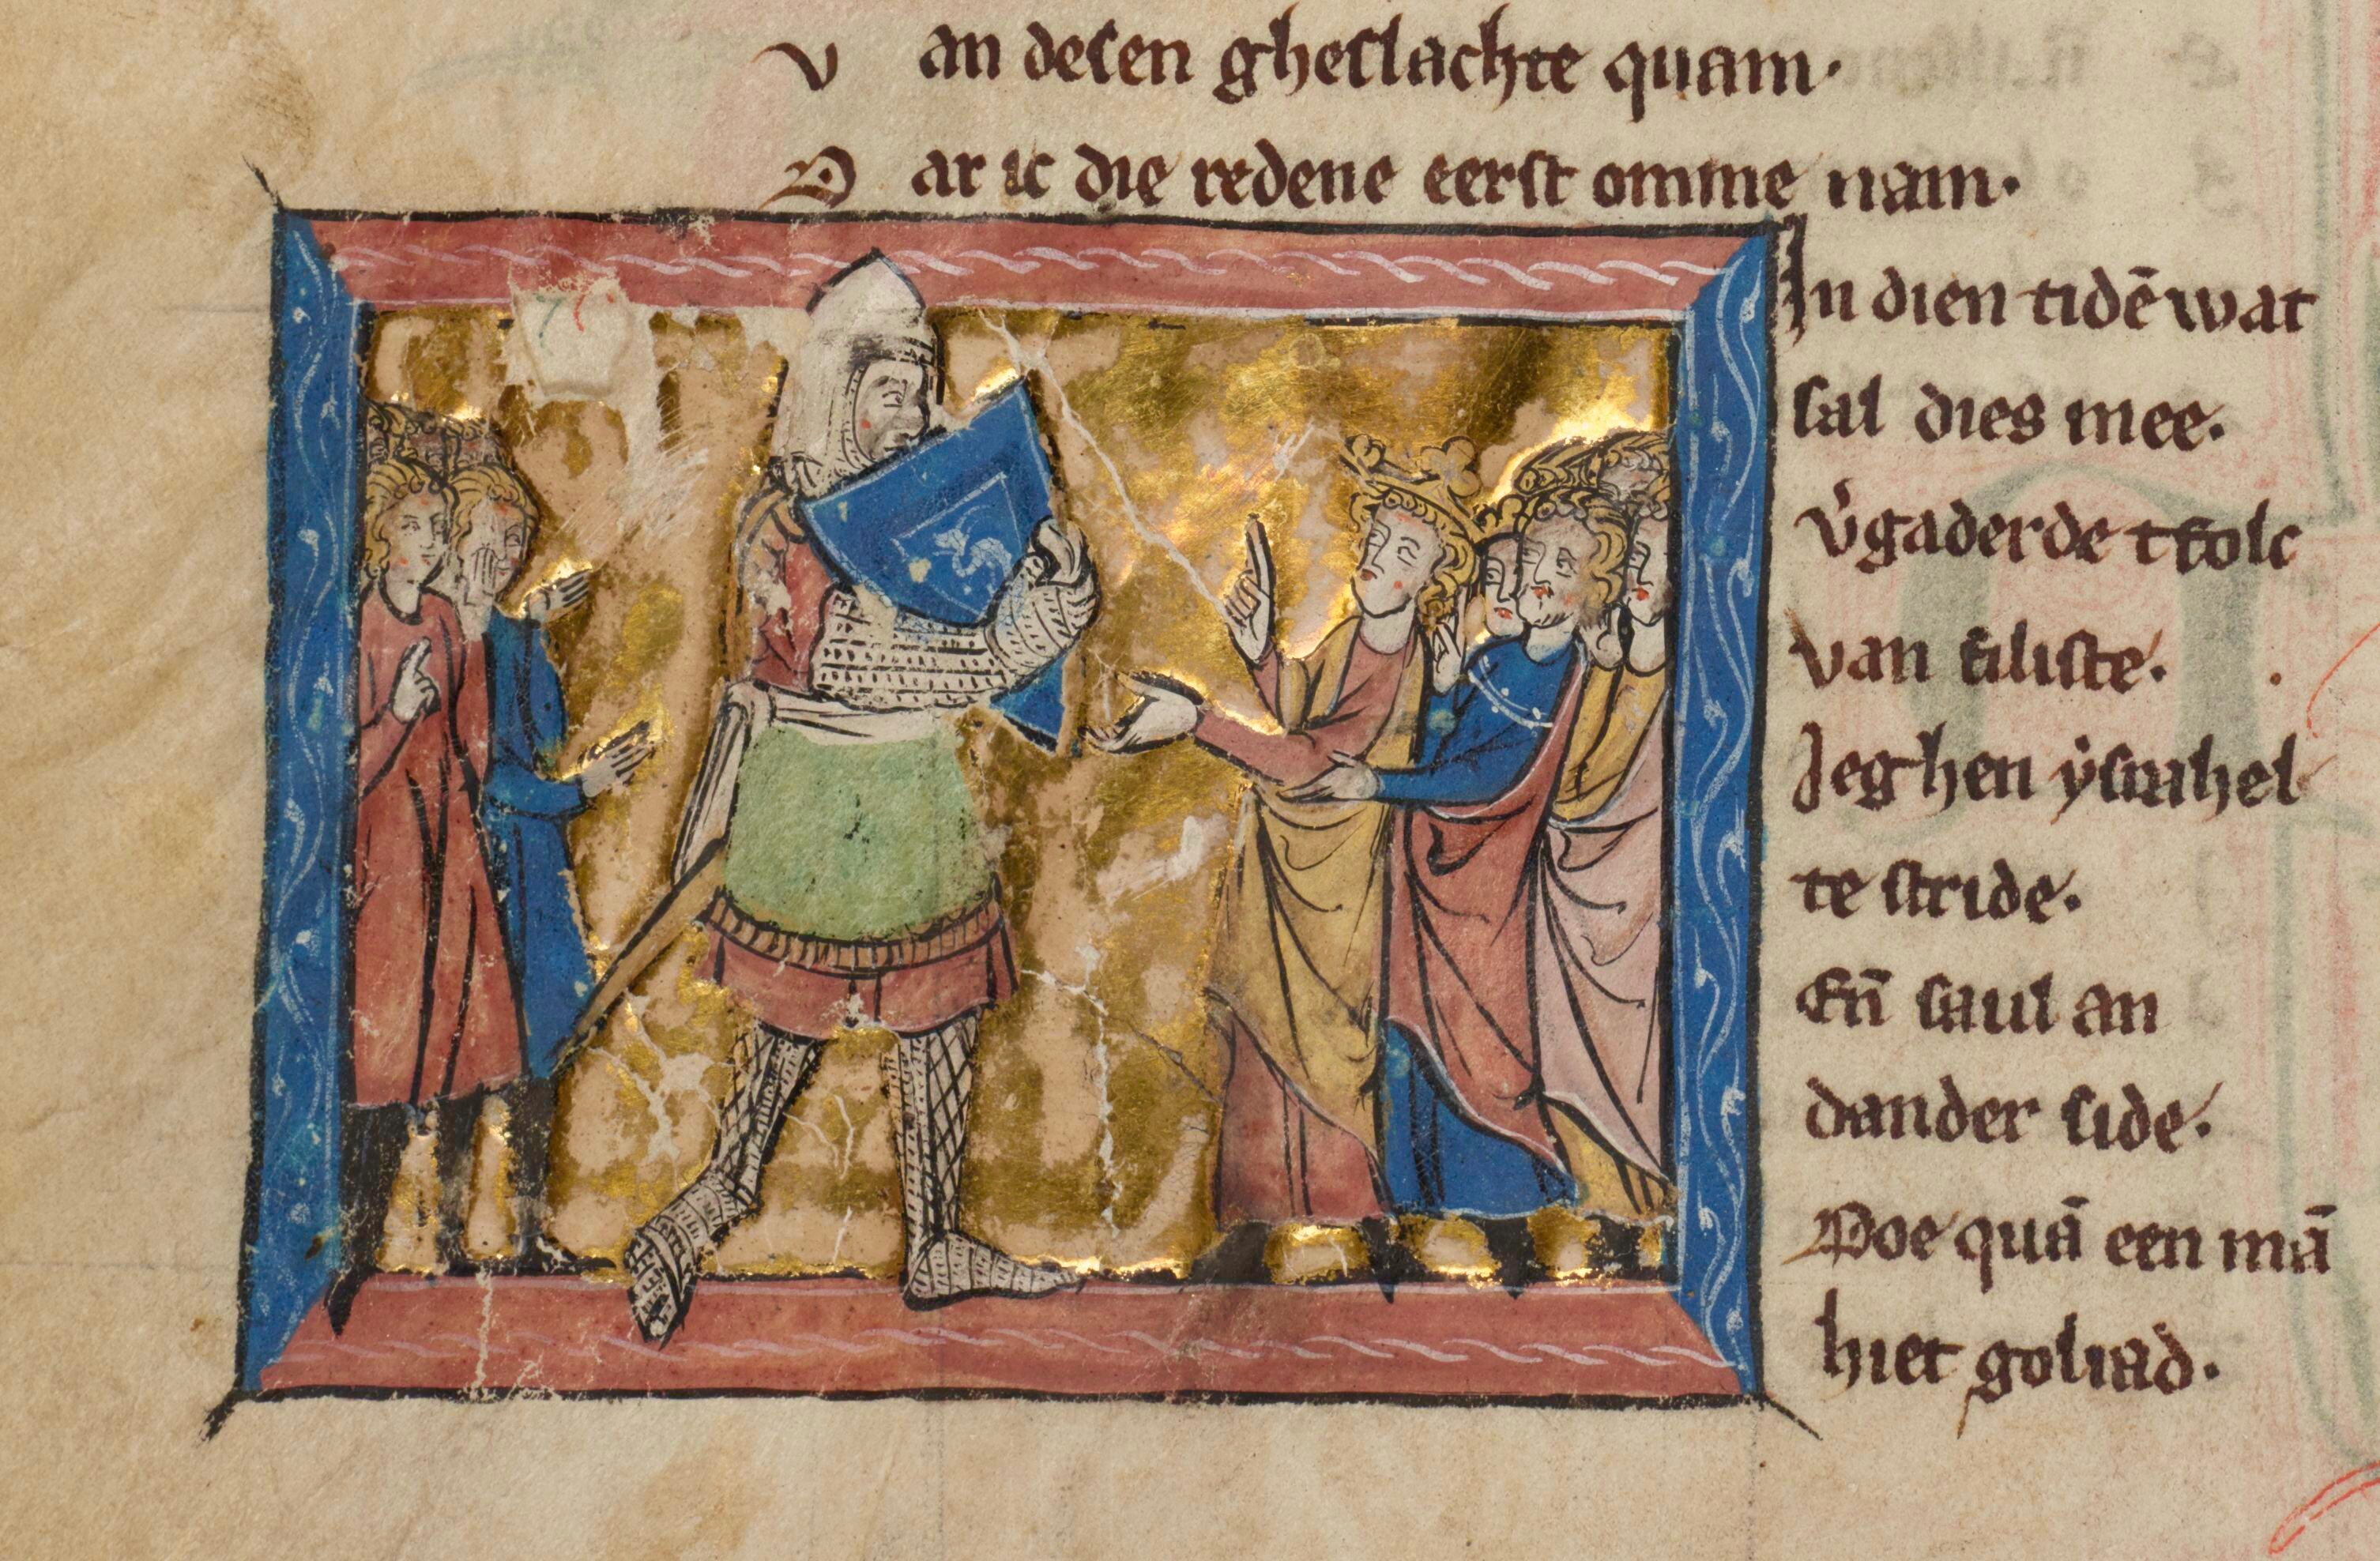 V an desen gheslachte quam·
D ar ic die redene eerst omme nam·
In dien tidē wat
sal dies mee·
v͛gaderde tfolc
van filiste·
Jeghen ẏsrahel
te stride·
Eñ saul an
dander side·
Doe quā een mā
hiet goliad·